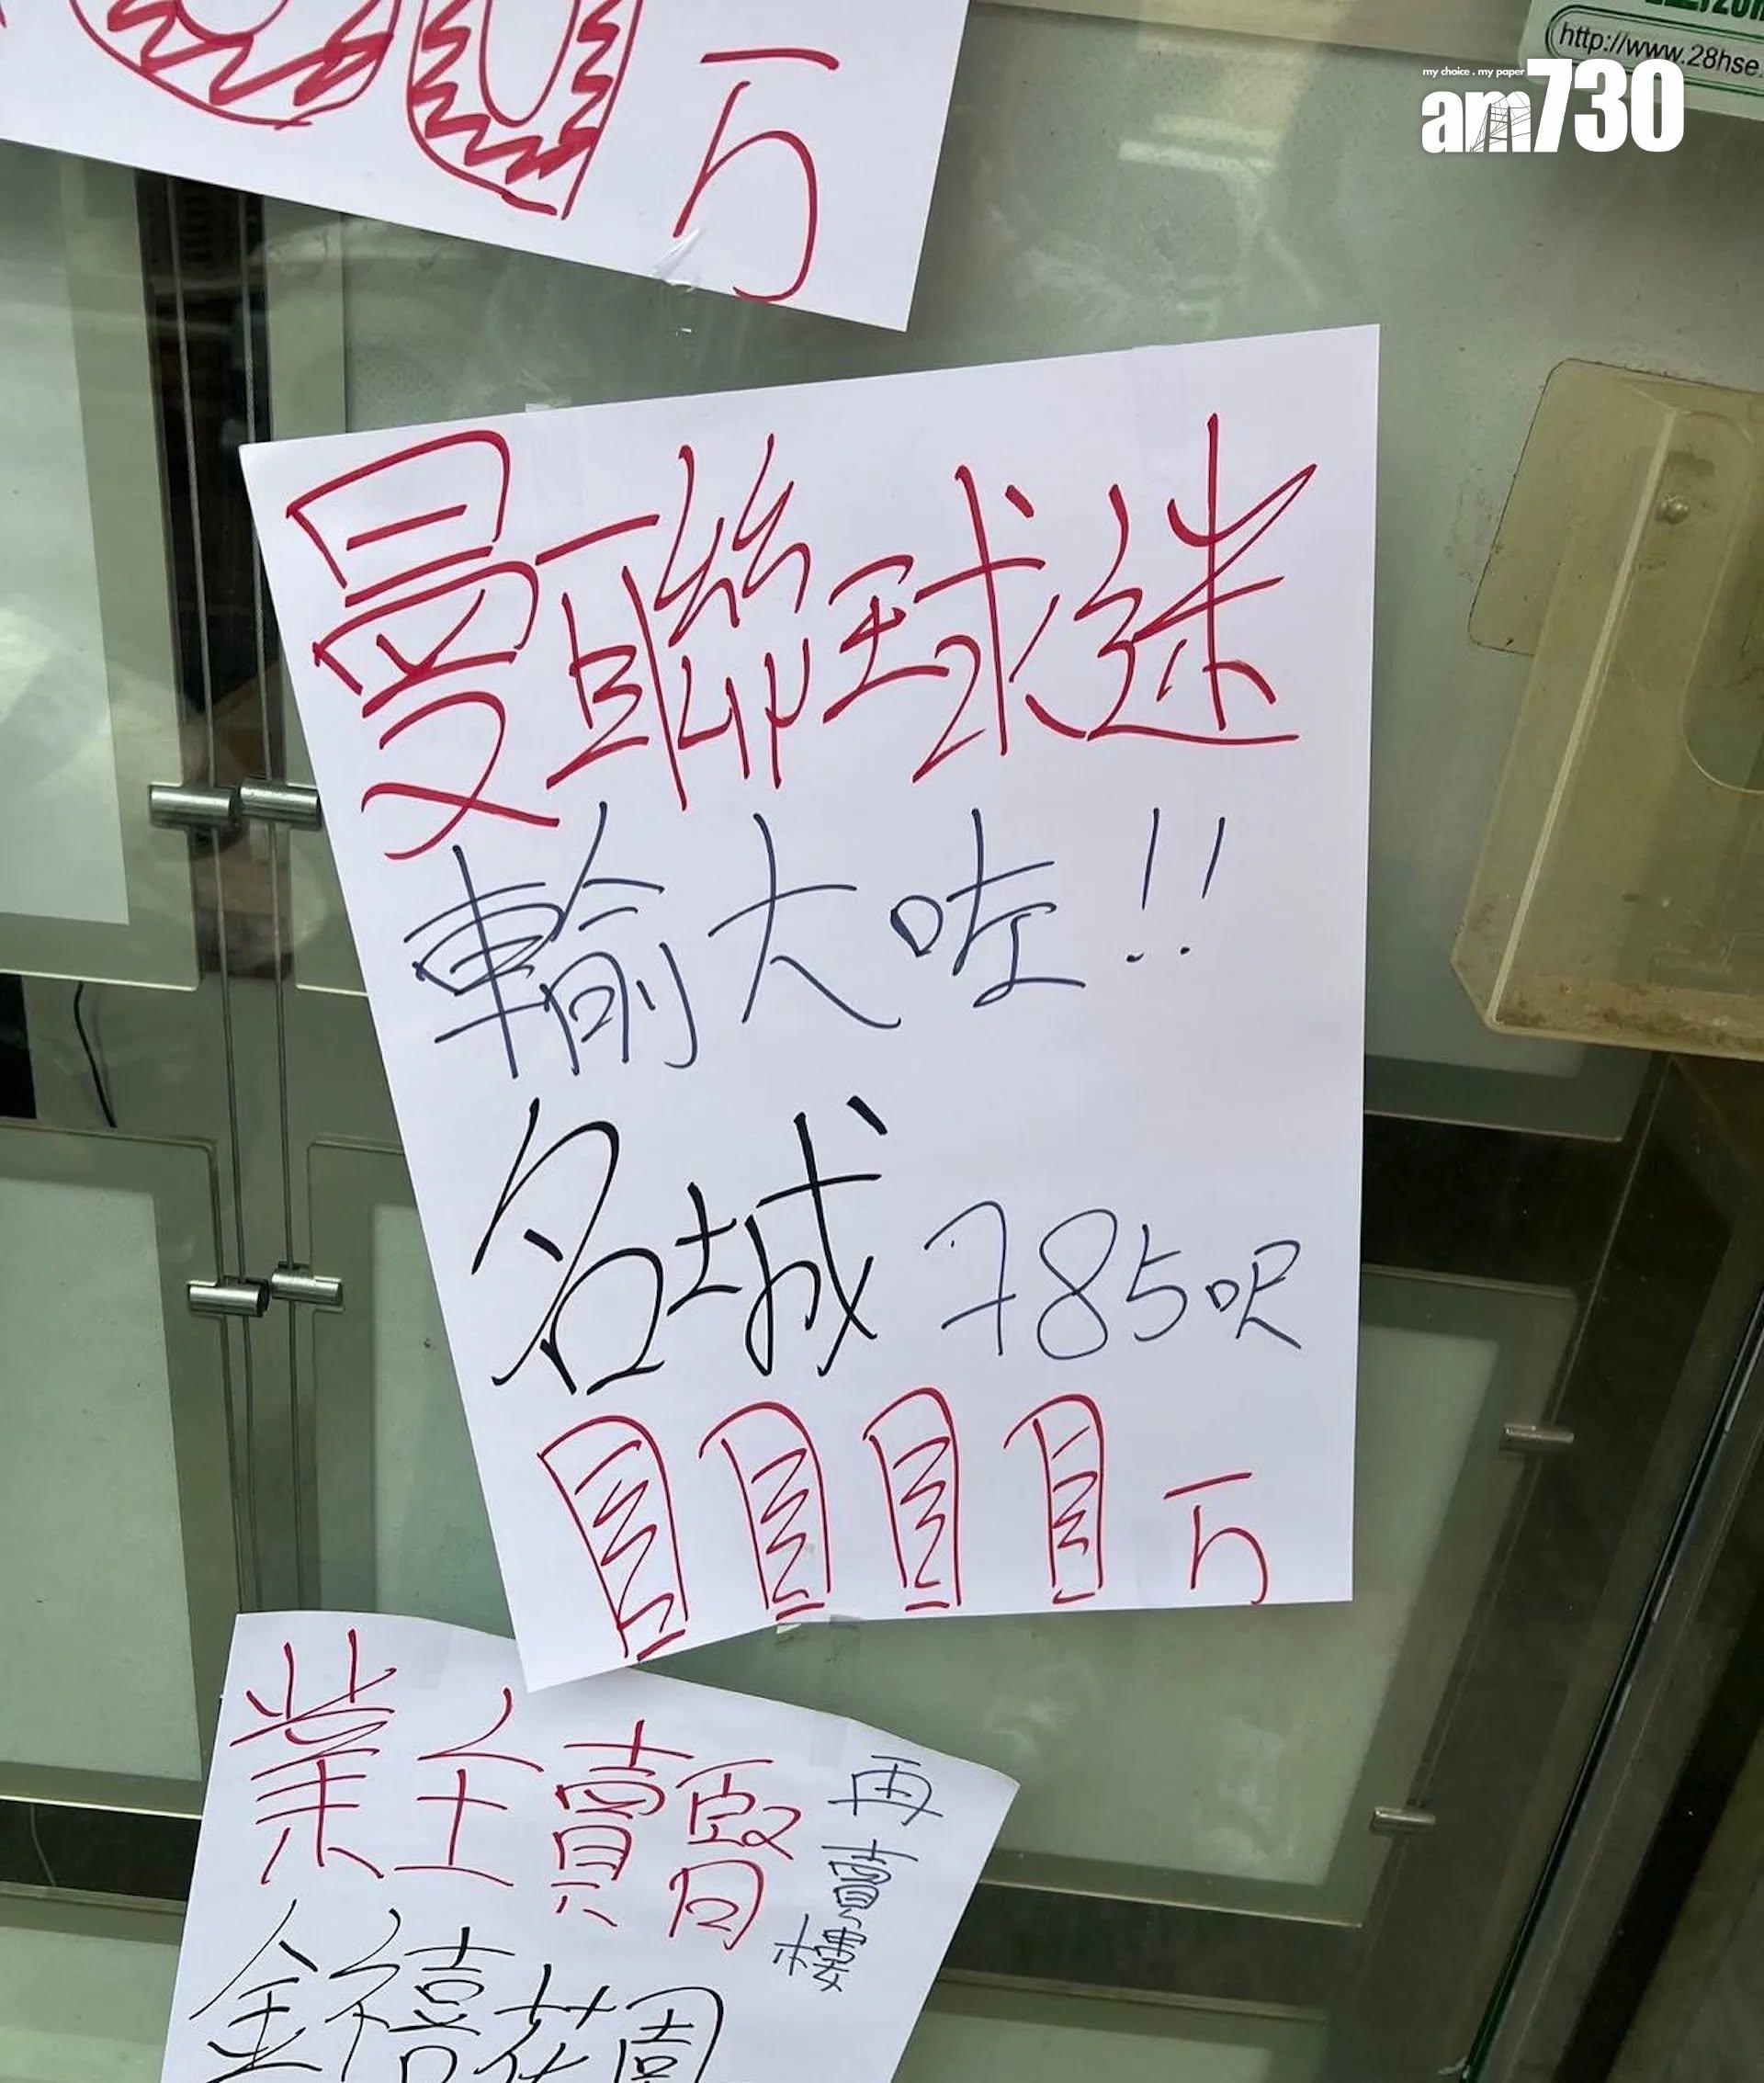 万
http://www.28hse.
my choice . my paper
am730
曼聯球迷
輸大咗!!
名城 785呎
1111万
業主賣腎
再賣樓
金禧花園